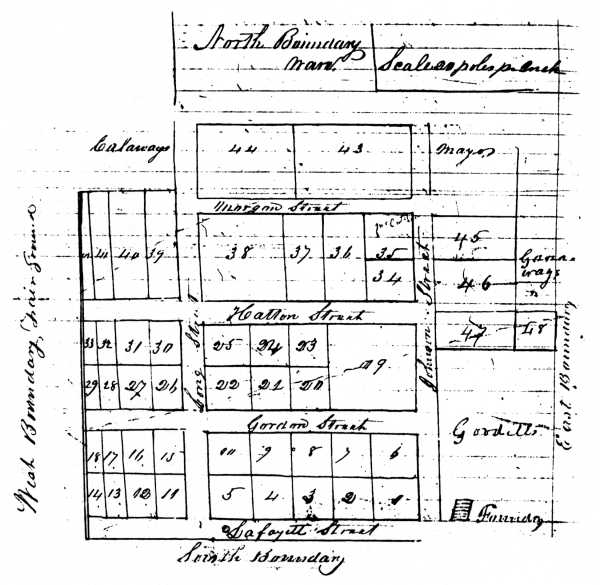 North Boundary
Scale 20 poles p. Inch
Calaways
44 43
Mayos
Morgan Street
41 40 39
38 37 36 35
34
45
46
47 48
Hatton Street
Long Street
Johnson Street
33 32 31 30
25 24 23
29 28 27 26
22 21 20
19
Gordon Street
18 17 16 15
10 9 8 7 6
14 13 12 11
5 4 3 2 1
Gordetts
Foundry
Lafayett Street
South Boundary
West Boundary,
East Boundary